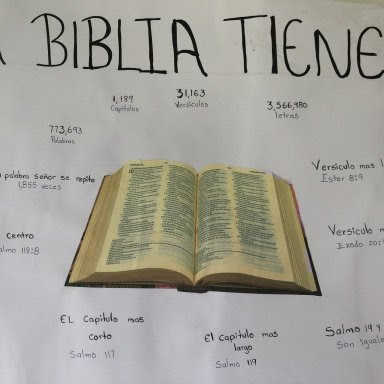 A BIBLIA TIENE
1,189
Capítulos
31,163
Versículos
3,566,480
letras
773,693
Palabras
palabra señor se repite
1,855 veces
Versículo mas
Ester 8:9
centro
Salmo 118:8
Versículo mas
Exodo 20:
EL Capítulo mas
corto
Salmo 117
El Capítulo mas
largo
Salmo 119
Salmo 14 y
Son iguale